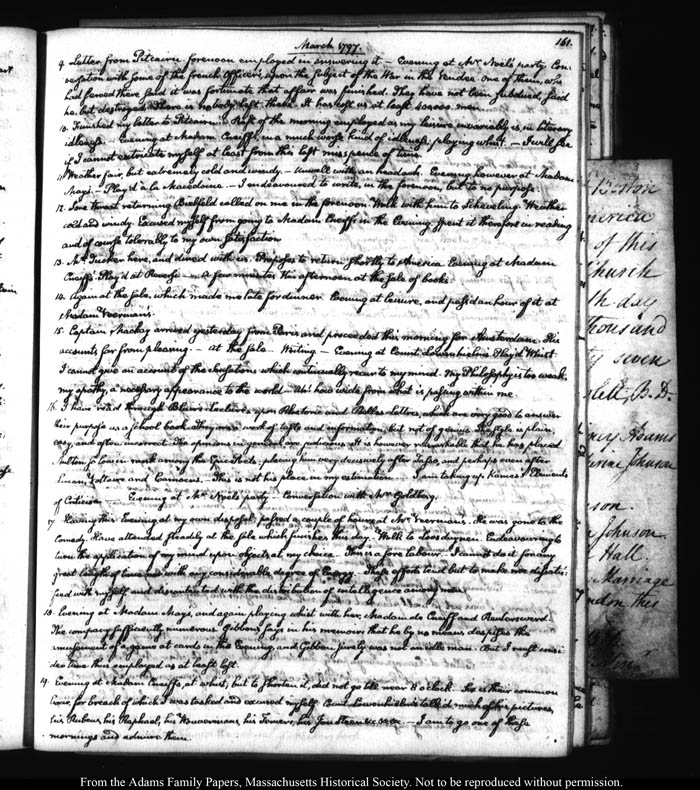 March 1797.
161.
9. Letter from Pitcairn forenoon employed in answering it — Evening at Mr. Noel's party. Con-
versation with some of the french Officers, upon the subject of the War in the Vendee. One of them, who
had served there said it was fortunate that affair was finished. They have not been subdued, said
he, but destroyed. There is nobody left there. It has cost us at least 400000 men.
10. Finished my letter to Pitcairn. Rest of the morning employed as my leisure invariably is, in literary
idleness. Evening at Madam Cueiffs, in a much worse kind of idleness; playing whist. — I will see
if I cannot extricate myself at least from this last misspence of time.
11. Weather fair, but extremely cold and windy. — Unwell with an headach. Evening however at Madam
Mays. — Play'd a la Macedoine. — I endeavoured to write, in the forenoon, but to no purpose.
12. Sore throat returning Bielfeld called on me in the forenoon. Walk with him to Scheveling. Weather
cold and windy. Excused myself from going to Madam Cueiffs in the Evening. Spent it therefore in reading
and of course tolerably to my own satisfaction.
13. Mr. Tucker here, and dined with us. Proposes to return shortly to America. Evening at Madam
Cueiffs. Play'd at Reversi. — A few minutes this afternoon at the sale of books.
14. Again at the sale, which made me late for dinner. Evening at leisure, and pass'd an hour of it at
Madam Veerman's.
15. Captain Mackay arrived yesterday from Paris and proceeded this morning for Amsterdam. His
accounts far from pleasing. — At the sale. Writing. — Evening at Count Löwenhielm's. Play'd Whist.
I cannot give an account of the sensations which continually recur to my mind. My Philosophy is too weak,
my apathy, a necessary appearance to the world. — Ah! how wide from what is passing within me.
16. I have read through Blair's Lectures upon Rhetoric and Belles-Lettres, which are very good to answer
their purpose as a school book. They are a work of taste and information, but not of genius. The style is plain,
easy, and often incorrect. The opinions in general are judicious. It is however remarkable that he has placed
Milton so low in rank among the Epic Poets, placing him very decisively after Tasso, and perhaps even after
Lucan, Voltaire and Camoens. — This is not his place in my estimation. I am taking up Kames's Elements
of Criticism. — Evening at Mr. Noel's party — Conversation with Mr. Goldberg.
17. Having this Evening at my own disposal passed a couple of hours at Mr. Veerman's. He was gone to the
Comedy. Have attended steadily at the sale which finishes this day. Walk to Loosduynen. Endeavouring to
turn the application of my mind upon objects at my choice. This is a sore labour. I cannot do it for any
great length of time nor with any considerable degree of Energy. These efforts tend but to make me dissatis-
fied with myself and discontented with the distribution of intelligence among men.
18. Evening at Madam Mays, and again playing whist with her, Madam de Cueiff and Reuterswerd.
The company sufficiently numerous. Gibbon says in his memoirs that he by no means despises the
amusement of a game at cards in the Evening, and Gibbon surely was not an idle man. But I must consi-
der time thus employed as at least lost.
19. Evening at Madam Cueiffs, at whist; but to shorten it, did not go till near 8 o'clock. Six is their common
hour, for breach of which I was tasked and excused myself. Count Löwenhielm talk'd much of his pictures,
his Rubens, his Raphael, his Wouvermans, his Teniers, his Jan Steen &c &c &c — I am to go one of these
mornings and admire them.
Boston
America
of this
Church
th day
thousand
ty seven
B. D.
Adams
Johnson
Johnson
Hall.
Marriage
ndon this
From the Adams Family Papers, Massachusetts Historical Society. Not to be reproduced without permission.